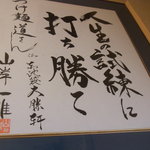 人生の試練に
打ち勝て
つけ麺 道さん江
東池袋 大勝軒
山岸一雄